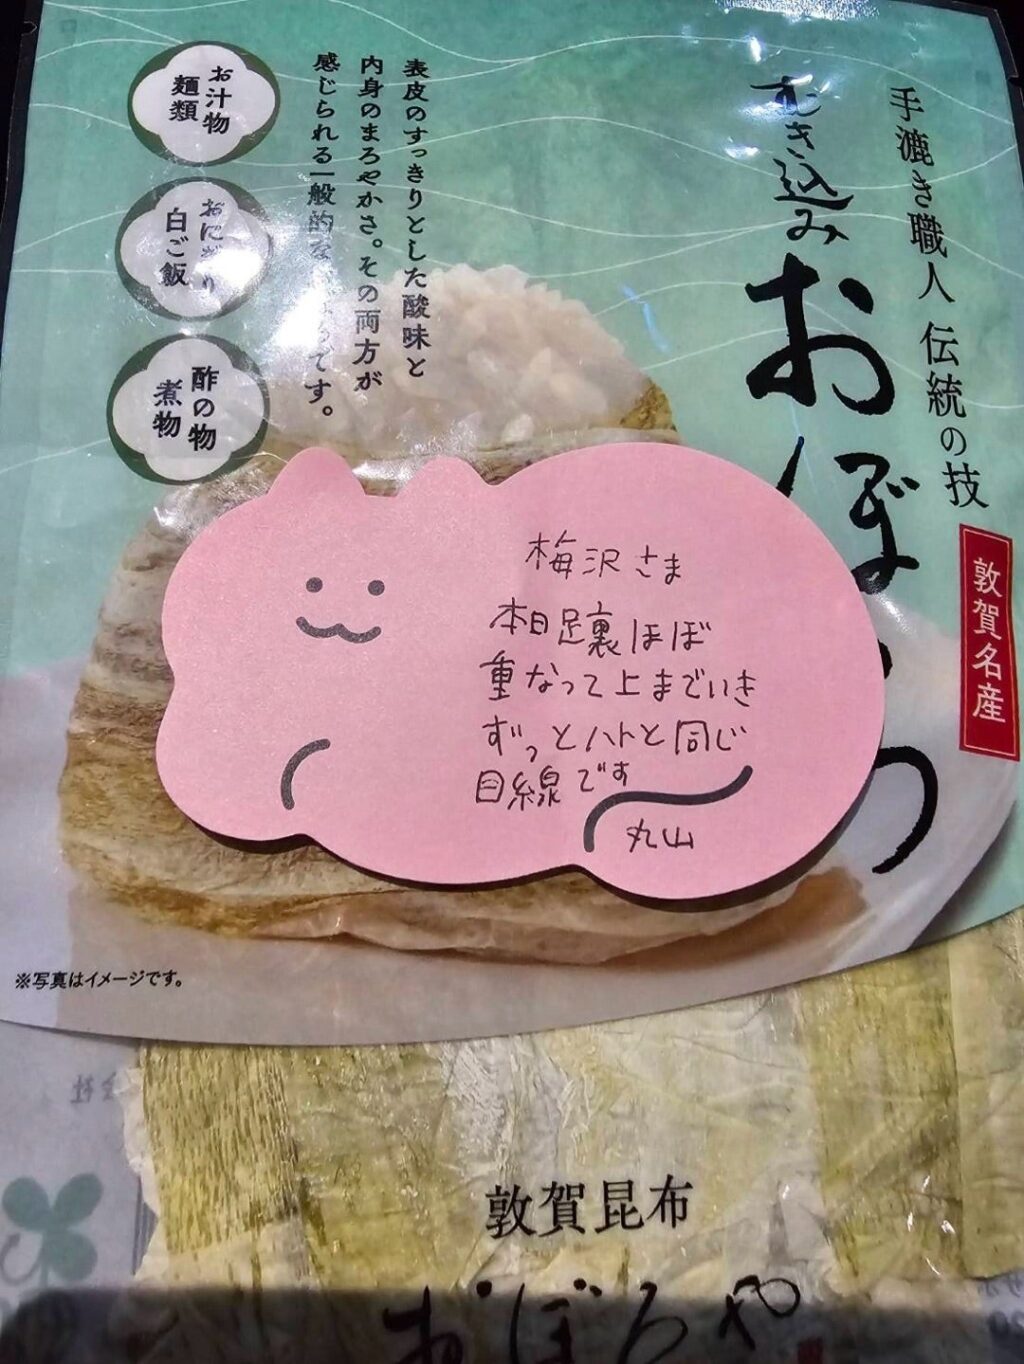 手漉き職人 伝統の技
むき込みおぼ
敦賀名産
表皮のすっきりとした酸味と
内身のまろやかさ。その両方が
感じられる一般的な
です。
お汁物
麺類
おにぎり
白ご飯
酢の物
煮物
梅沢さま
本日足裏ほぼ
重なって上までいき
ずっとハトと同じ
目線です
丸山
※写真はイメージです。
敦賀昆布
おぼろや